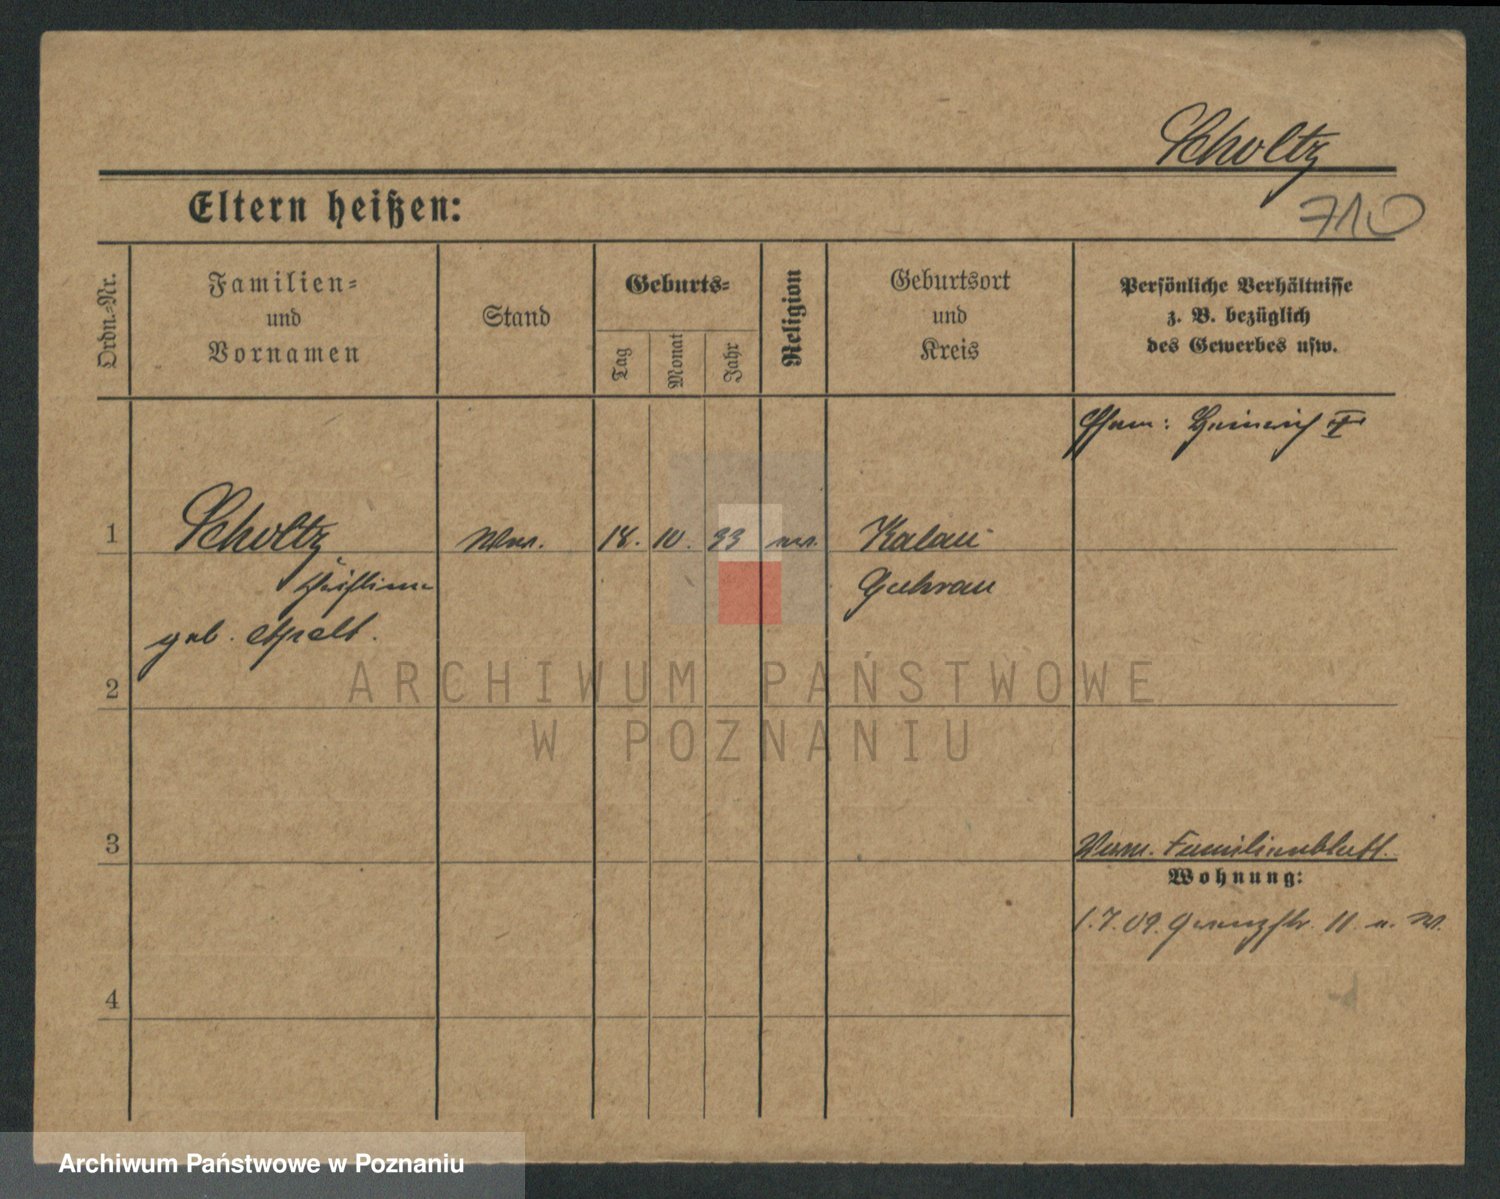 Scholtz
710
Eltern heißen:
Ordn.-Nr.
Familien-
und
Vornamen
Stand
Geburts-
Tag
Monat
Jahr
Religion
Geburtsort
und
Kreis
Persönliche Verhältnisse
z. B. bezüglich
des Gewerbes usw.
Heinrich
1
Scholtz
Ww.
18. 10. 33
Kalau
Guhrau
geb. Apelt.
2
ARCHIWUM PAŃSTWOWE
W POZNANIU
3
Familienblatt.
Wohnung:
1.7.09. 11
4
Archiwum Państwowe w Poznaniu